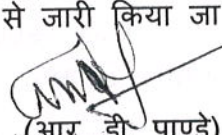 से जारी किया जा
(आर. डी. पाण्डे)